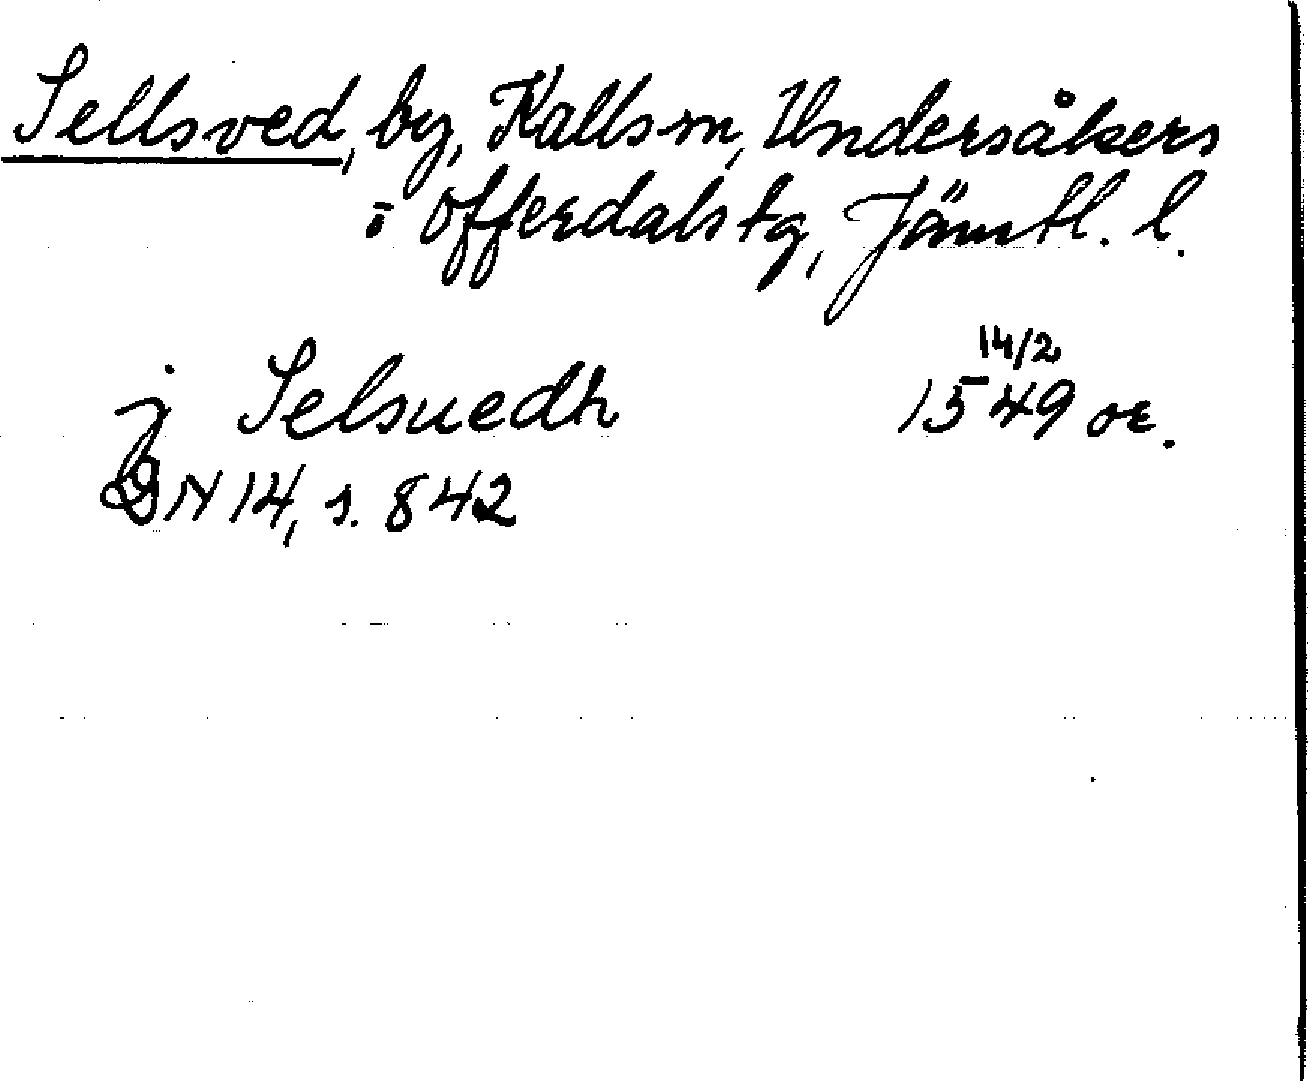 Sellsved, by, Kalls sn, Undersåkers
o Offerdals tg, Jämtl. l.
14/2
j Selsuedh 1549 or.
DN 14, s. 842